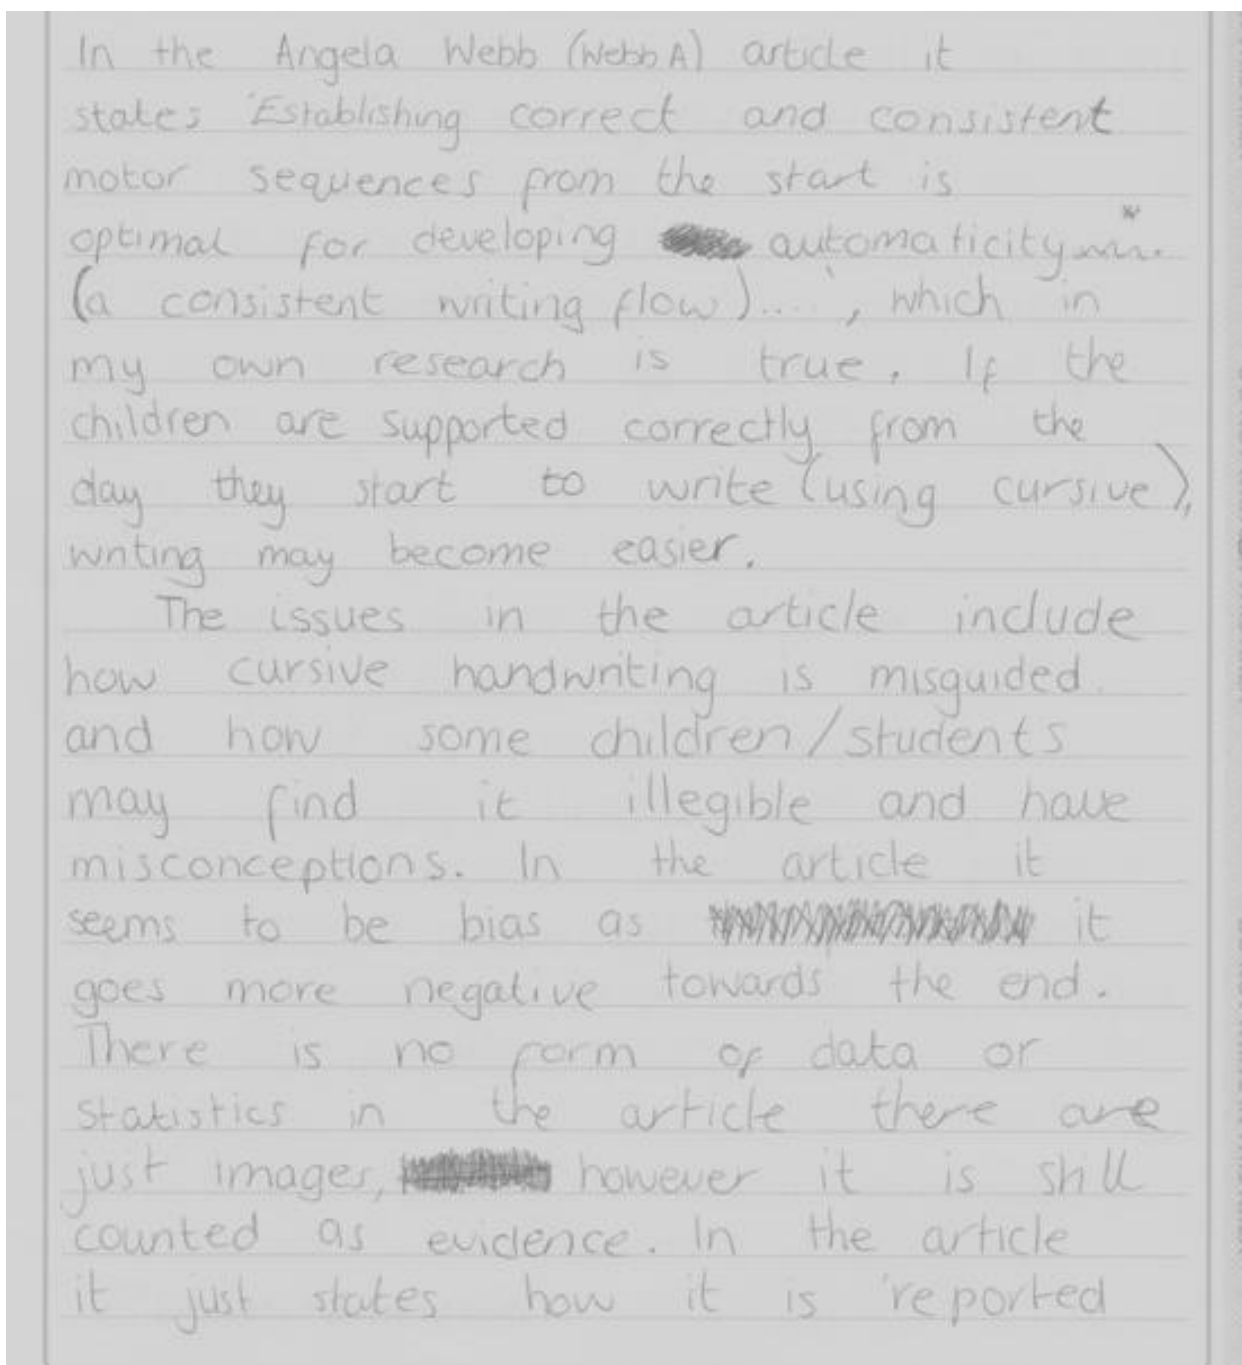 In the Angela Webb (Webb A) article it
states 'Establishing correct and consistent
motor sequences from the start is
optimal for developing automaticity *
(a consistent writing flow)....', which in
my own research is true. If the
children are supported correctly from the
day they start to write (using cursive),
writing may become easier.
The issues in the article include
how cursive handwriting is misguided
and how some children/students
may find it illegible and have
misconceptions. In the article it
seems to be bias as it
goes more negative towards the end.
There is no form of data or
statistics in the article there are
just images, however it is still
counted as evidence. In the article
it just states how it is 'reported